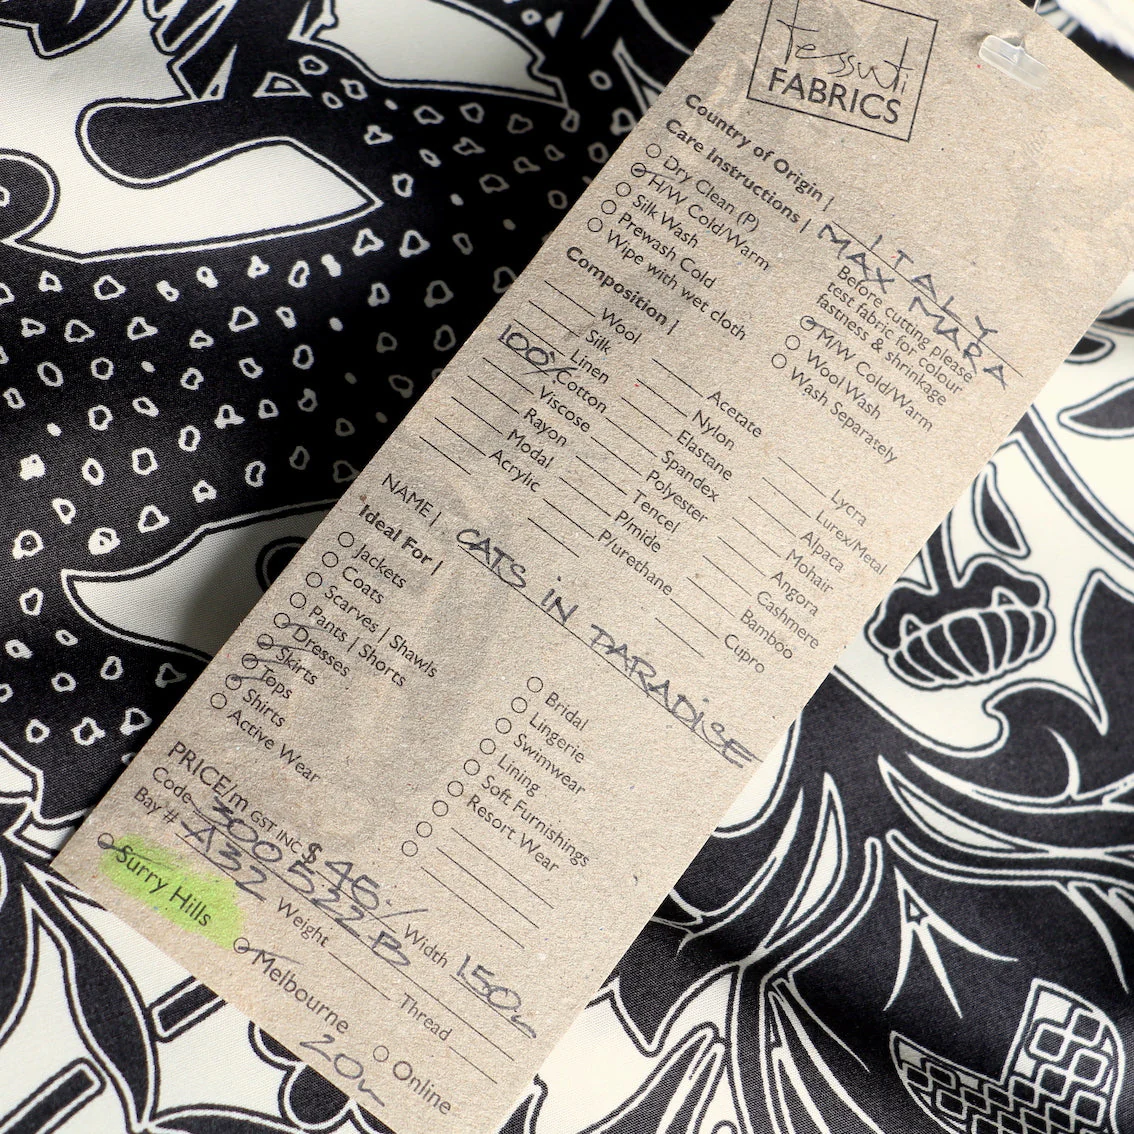 tessuti
FABRICS
Country of Origin | ITALY
Care Instructions | MAX MARA
Dry Clean (P)
H/W Cold/Warm
Silk Wash
Prewash Cold
Wipe with wet cloth
Before cutting please
test fabric for colour
fastness & shrinkage
M/W Cold/Warm
Wool Wash
Wash Separately
Composition |
Wool
Silk
Linen
100% Cotton
Viscose
Rayon
Modal
Acrylic
Acetate
Nylon
Elastane
Spandex
Polyester
Tencel
P/mide
P/urethane
Lycra
Lurex/Metal
Alpaca
Mohair
Angora
Cashmere
Bamboo
Cupro
NAME | CATS IN PARADISE
Ideal For |
Jackets
Coats
Scarves | Shawls
Pants | Shorts
Dresses
Skirts
Tops
Shirts
Active Wear
Bridal
Lingerie
Swimwear
Lining
Soft Furnishings
Resort Wear
PRICE/m GST INC $ 46.- Width 150
Code 300522B
Bay # A32 Weight Thread
Surry Hills Melbourne Online
20